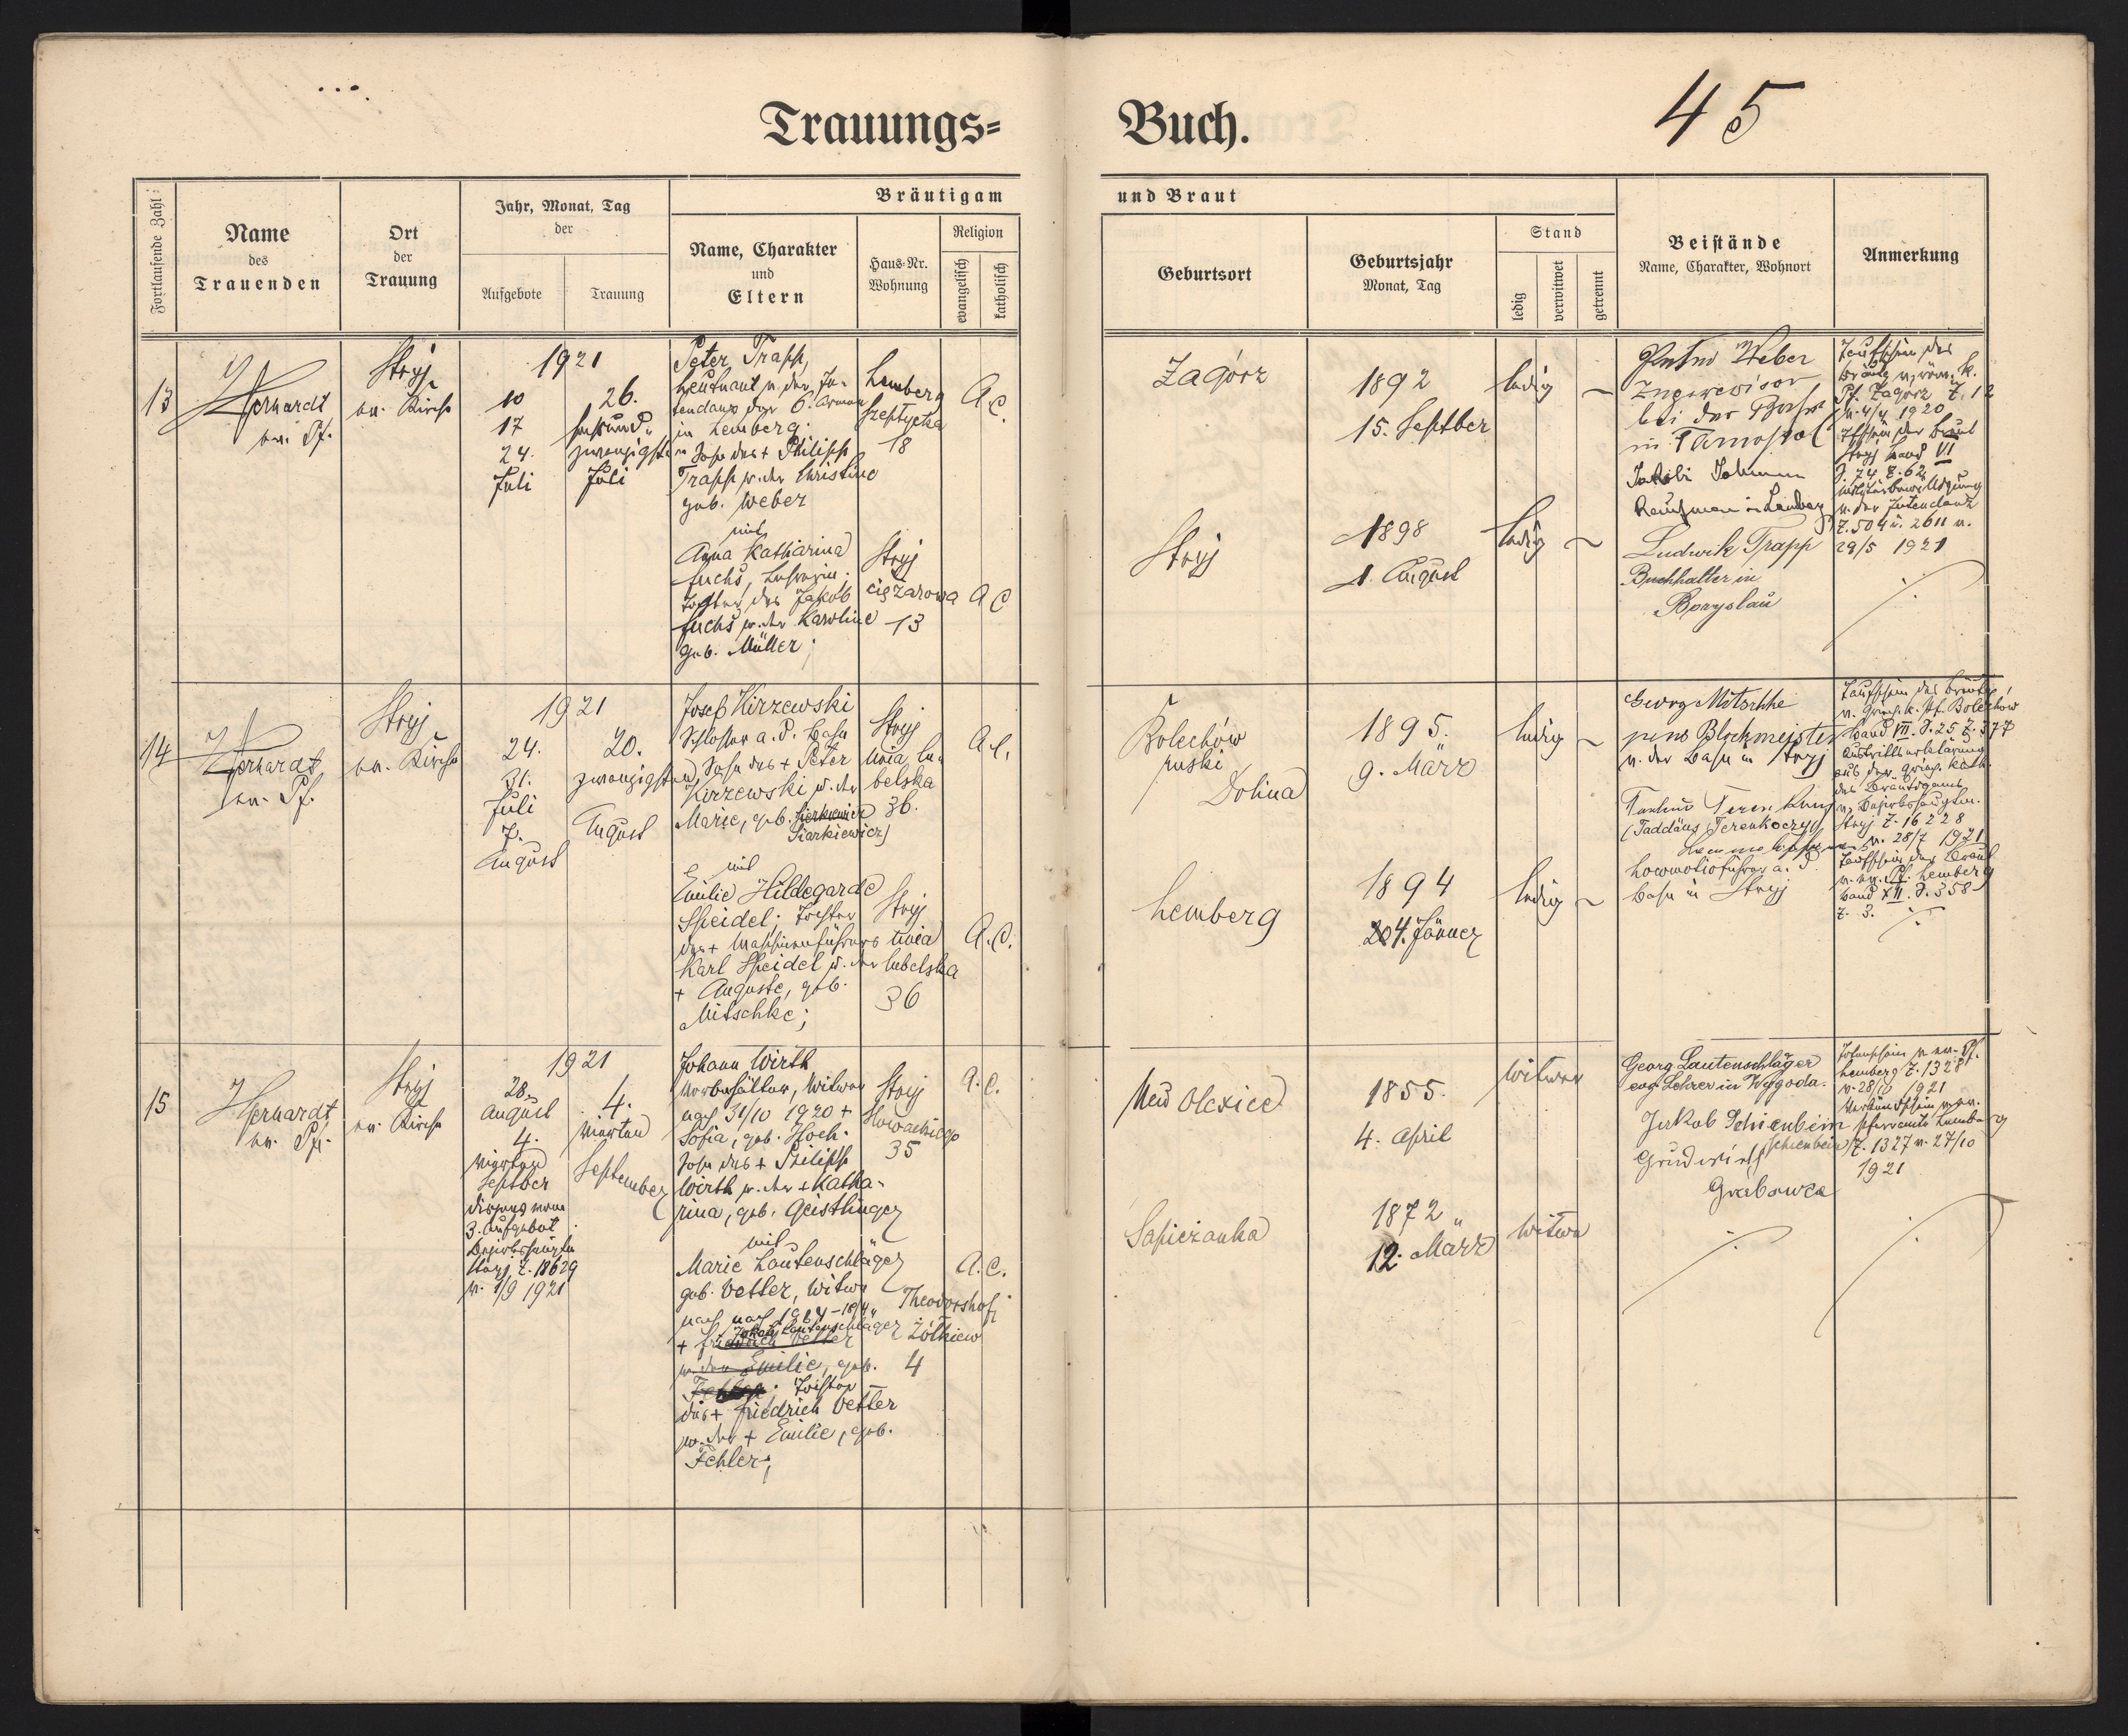 Trauungs=
Buch.
45
Fortlaufende Zahl
Name
des
Trauenden
Ort
der
Trauung
Jahr, Monat, Tag
der
Aufgebote
Trauung
Bräutigam
Name, Charakter
und
Eltern
Haus-Nr.
Wohnung
Religion
evangelisch
katholisch
und Braut
Geburtsort
Geburtsjahr
Monat, Tag
Stand
ledig
verwitwet
getrennt
Beistände
Name, Charakter, Wohnort
Anmerkung
13
Gerhardt
ev. Pf.
Stryj
ev. Kirche
1921
10
17
24.
Juli
26.
sechsund-
zwanzigsten
Juli
Peter Trapp,
Leutnant in der In-
tendanz der 6. Armee
in Lemberg;
Sohn des + Philipp
Trapp u. der Christine
geb. Weber
mit
Anna Katharina
Fuchs, Lehrerin;
Tochter des Jakob
Fuchs u. der Karoline
geb. Müller;
Lemberg
Szeptycka
18
Stryj
ciężarowa
13
A.C.
A C
Zagórz
1892
15. Septber
ledig
Stryj
1898
1. August
ledig
Weber
bei der Bahn
in Tarnopol
Jakobi Johann
Kaufmann in Lemberg
Ludwik Trapp
Buchhalter in
Boryslau
Taufschein des
Bräutig. v. röm. k.
Pf. Zagórz Z. 12
v. 4/4 1920
Tfschein der Braut
Stryj Band VI
S 74 Z. 62
Militärbewilligung
v. der Intendanz
Z. 504 u. 2611 v.
29/5 1921
14
Gerhardt
ev. Pf.
Stryj
ev. Kirche
1921
24.
31.
Juli
7.
August
20.
zwanzigsten
August
Josef Kirzewski
Schlosser a. d. Bahn
Sohn des + Peter
Kirzewski u. der
Marie, geb. Sierkiewicz
Siarkiewicz)
mit
Emilie Hildegarde
Speidel; Tochter
des + Maschinenführers
Karl Speidel u. der
+ Auguste, geb.
Mitschke;
Stryj
Unia lu-
belska
36.
Stryj
Unia
lubelska
36
A.C.
A.C.
Bolechów
ruski
Dolina
1895.
9. März
ledig
Lemberg
1894
204. Jänner
ledig
Georg Mitschke
pens Blockmeister
v. der Bahn in Stryj
(Taddäus Terenkoczy)
Lokomotivführer a. d.
Bahn in Stryj
Taufschein des Bräutig.
v. griech. k. Pf. Bolechów
Band VII. S. 25 Z. 377
Austrittserklärung
aus der griech. kath.
des Bräutigams
v. Bezirkshauptm.
Stryj Z. 16228
v. 28/7 1921
Taufschein der Braut
v. ev. Pf. Lemberg
Band XII. S. 358
Z. 3.
15
Gerhardt
ev. Pf.
Stryj
ev. Kirche
1921
28.
August
4.
vierten
Septber
Dispens vom
3. Aufgebot
Stryj Z. 18629
v. 1/9 1921
4.
vierten
September
Johann Wirth
Vorbehälter, Witwer
nach 31/10 1920 +
Sofia, geb. Hoch.
Sohn des + Philipp
Wirth u. der + Katha-
rina, geb. Geistlinger
mit
Marie Lautenschläger
geb. Vetter, Witwe
Jakob Lautenschläger
+ Friedrich Vetter
u. der Emilie, geb.
Fehler; Tochter
des + Friedrich Vetter
u. der + Emilie, geb.
Fehler;
Stryj
Słowackiego
35
Theodorshof
Żółkiew
4
A.C.
A.C.
Neu Olexice
1855.
4. April
Witwer
Sapieżanka
1872
12. März
Witwe
Georg Lautenschläger
evg. Lehrer in Wygoda.
Jakob Schienbein
(Schienbein)
Grundwirth
Grabowce
Totenschein v. ev. Pf.
Lemberg Z. 1328
v. 28/10 1921
Verkündschein v. ev.
Pfarramte Lemberg
Z. 1327 v. 27/10
1921